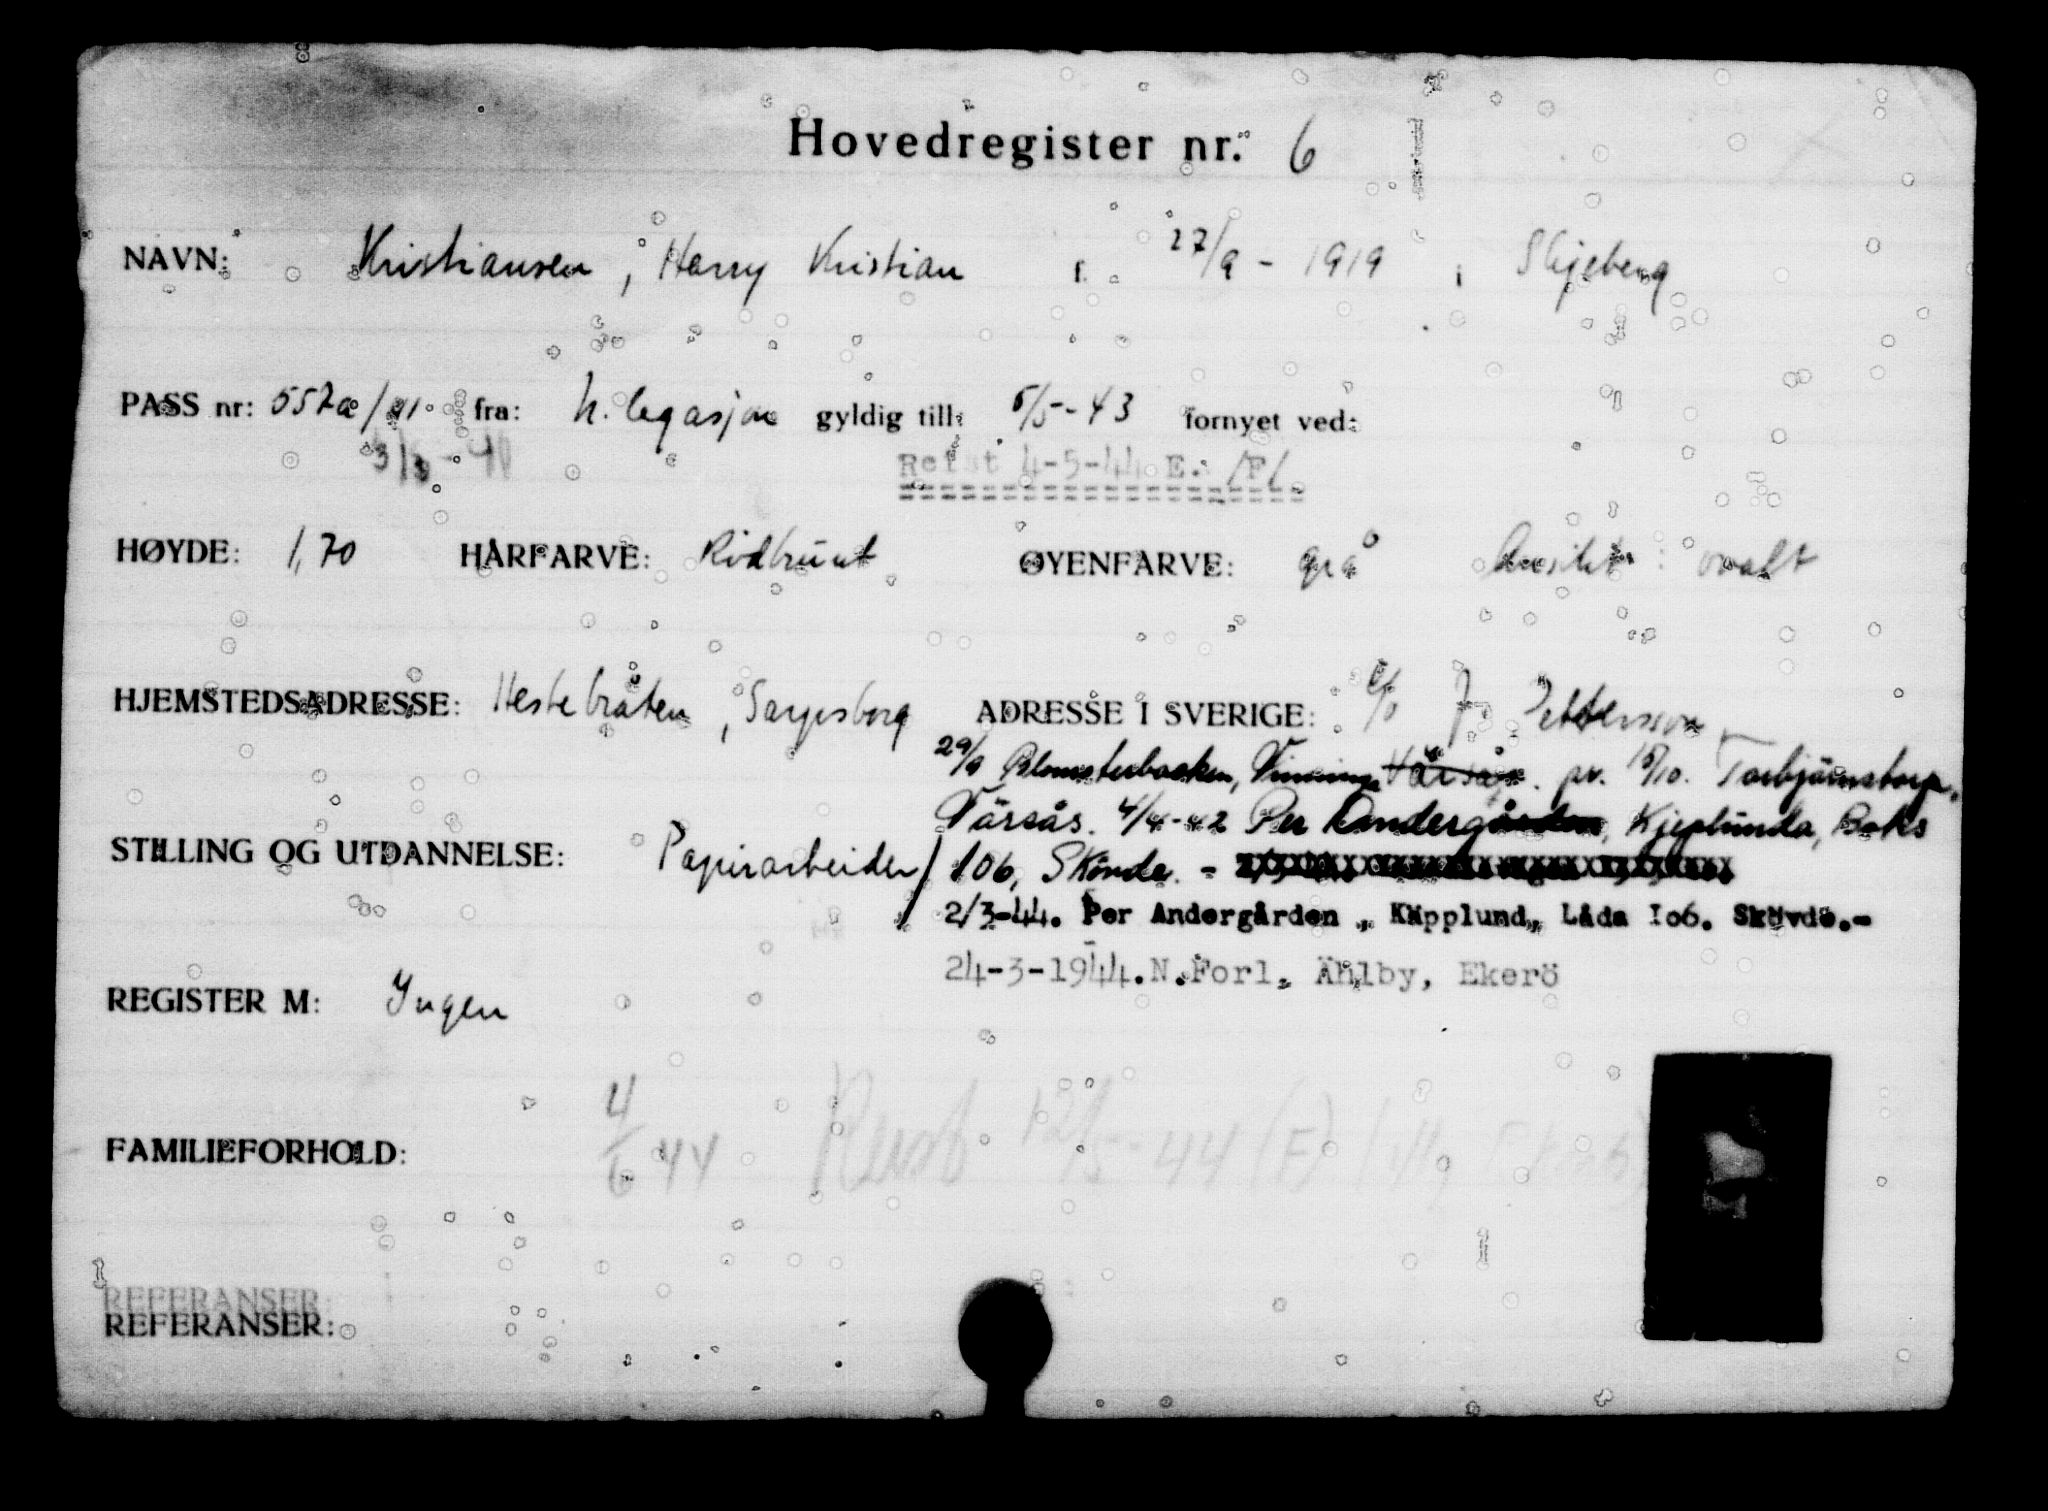 Hovedregister nr. 6
NAVN: Kristiansen, Harry Kristian f. 27/9 - 1919 i Skjeberg
PASS nr: 552a/41 fra: h. legasjon gyldig till: 5/5-43 fornyet ved:
Reist 4-5-44 E. /F/.
HØYDE: 1,70 HÅRFARVE: Rødbrunt ØYENFARVE: grå Ansikt: ovalt
HJEMSTEDSADRESSE: Hestebråten, Sarpsborg ADRESSE I SVERIGE: c/o J. Pettersson
29/9 Blomsterbacken, Vinninga Värsås. pr. 15/10. Torbjörnstorp,
Värsås. 4/4-42 Per Andergården, Kjeplunda, Boks
STILLING OG UTDANNELSE: Papirarbeider / 106, Skövde. -
2/3-44. Per Andergården, Käpplund, Låda 106. Skövde.-
24-3-1944. N.Forl. Ählby, Ekerö
REGISTER M: Ingen
FAMILIEFORHOLD: 4/6 44 Reist 12/5-44 (F)
REFERANSER:
REFERANSER: